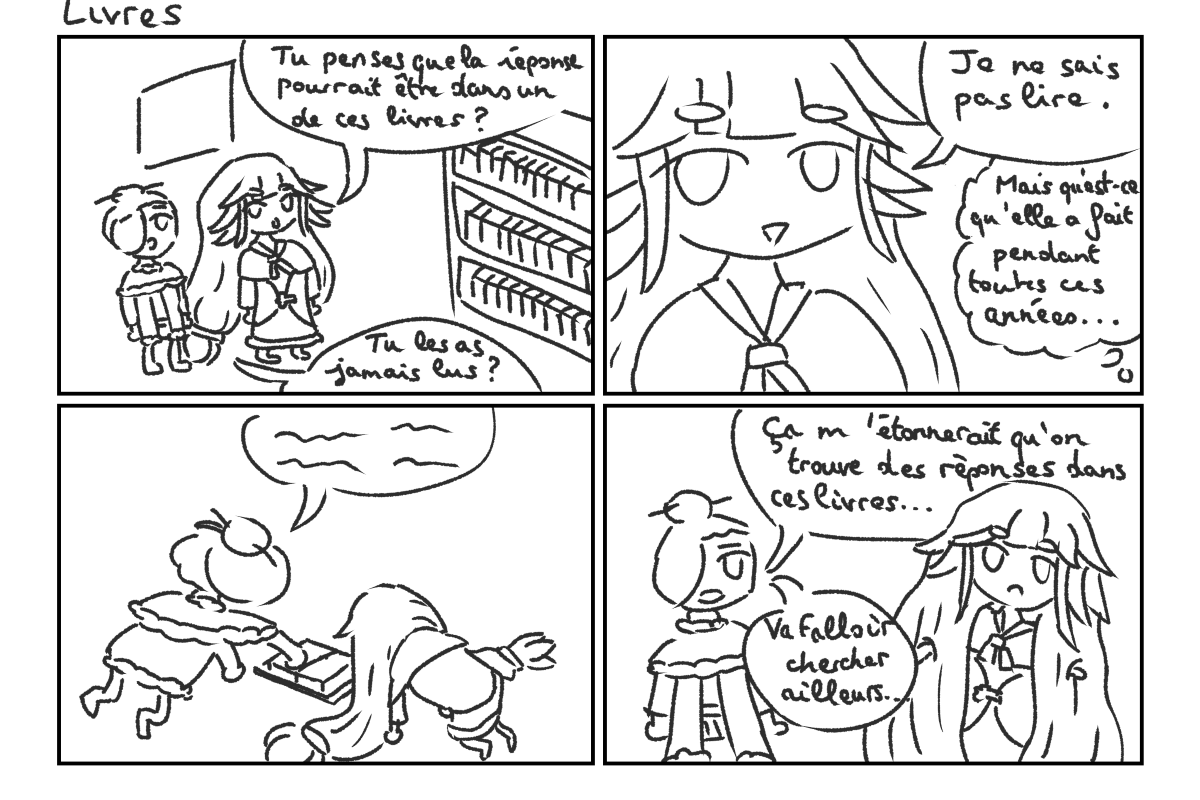 Livres
Tu penses que la réponse
pourrait être dans un
de ces livres ?
Tu les as
jamais lus ?
Je ne sais
pas lire .
Mais qu'est-ce
qu'elle a fait
pendant
toutes ces
années...
Ça m'étonnerait qu'on
trouve des réponses dans
ces livres...
Va falloir
chercher
ailleurs...